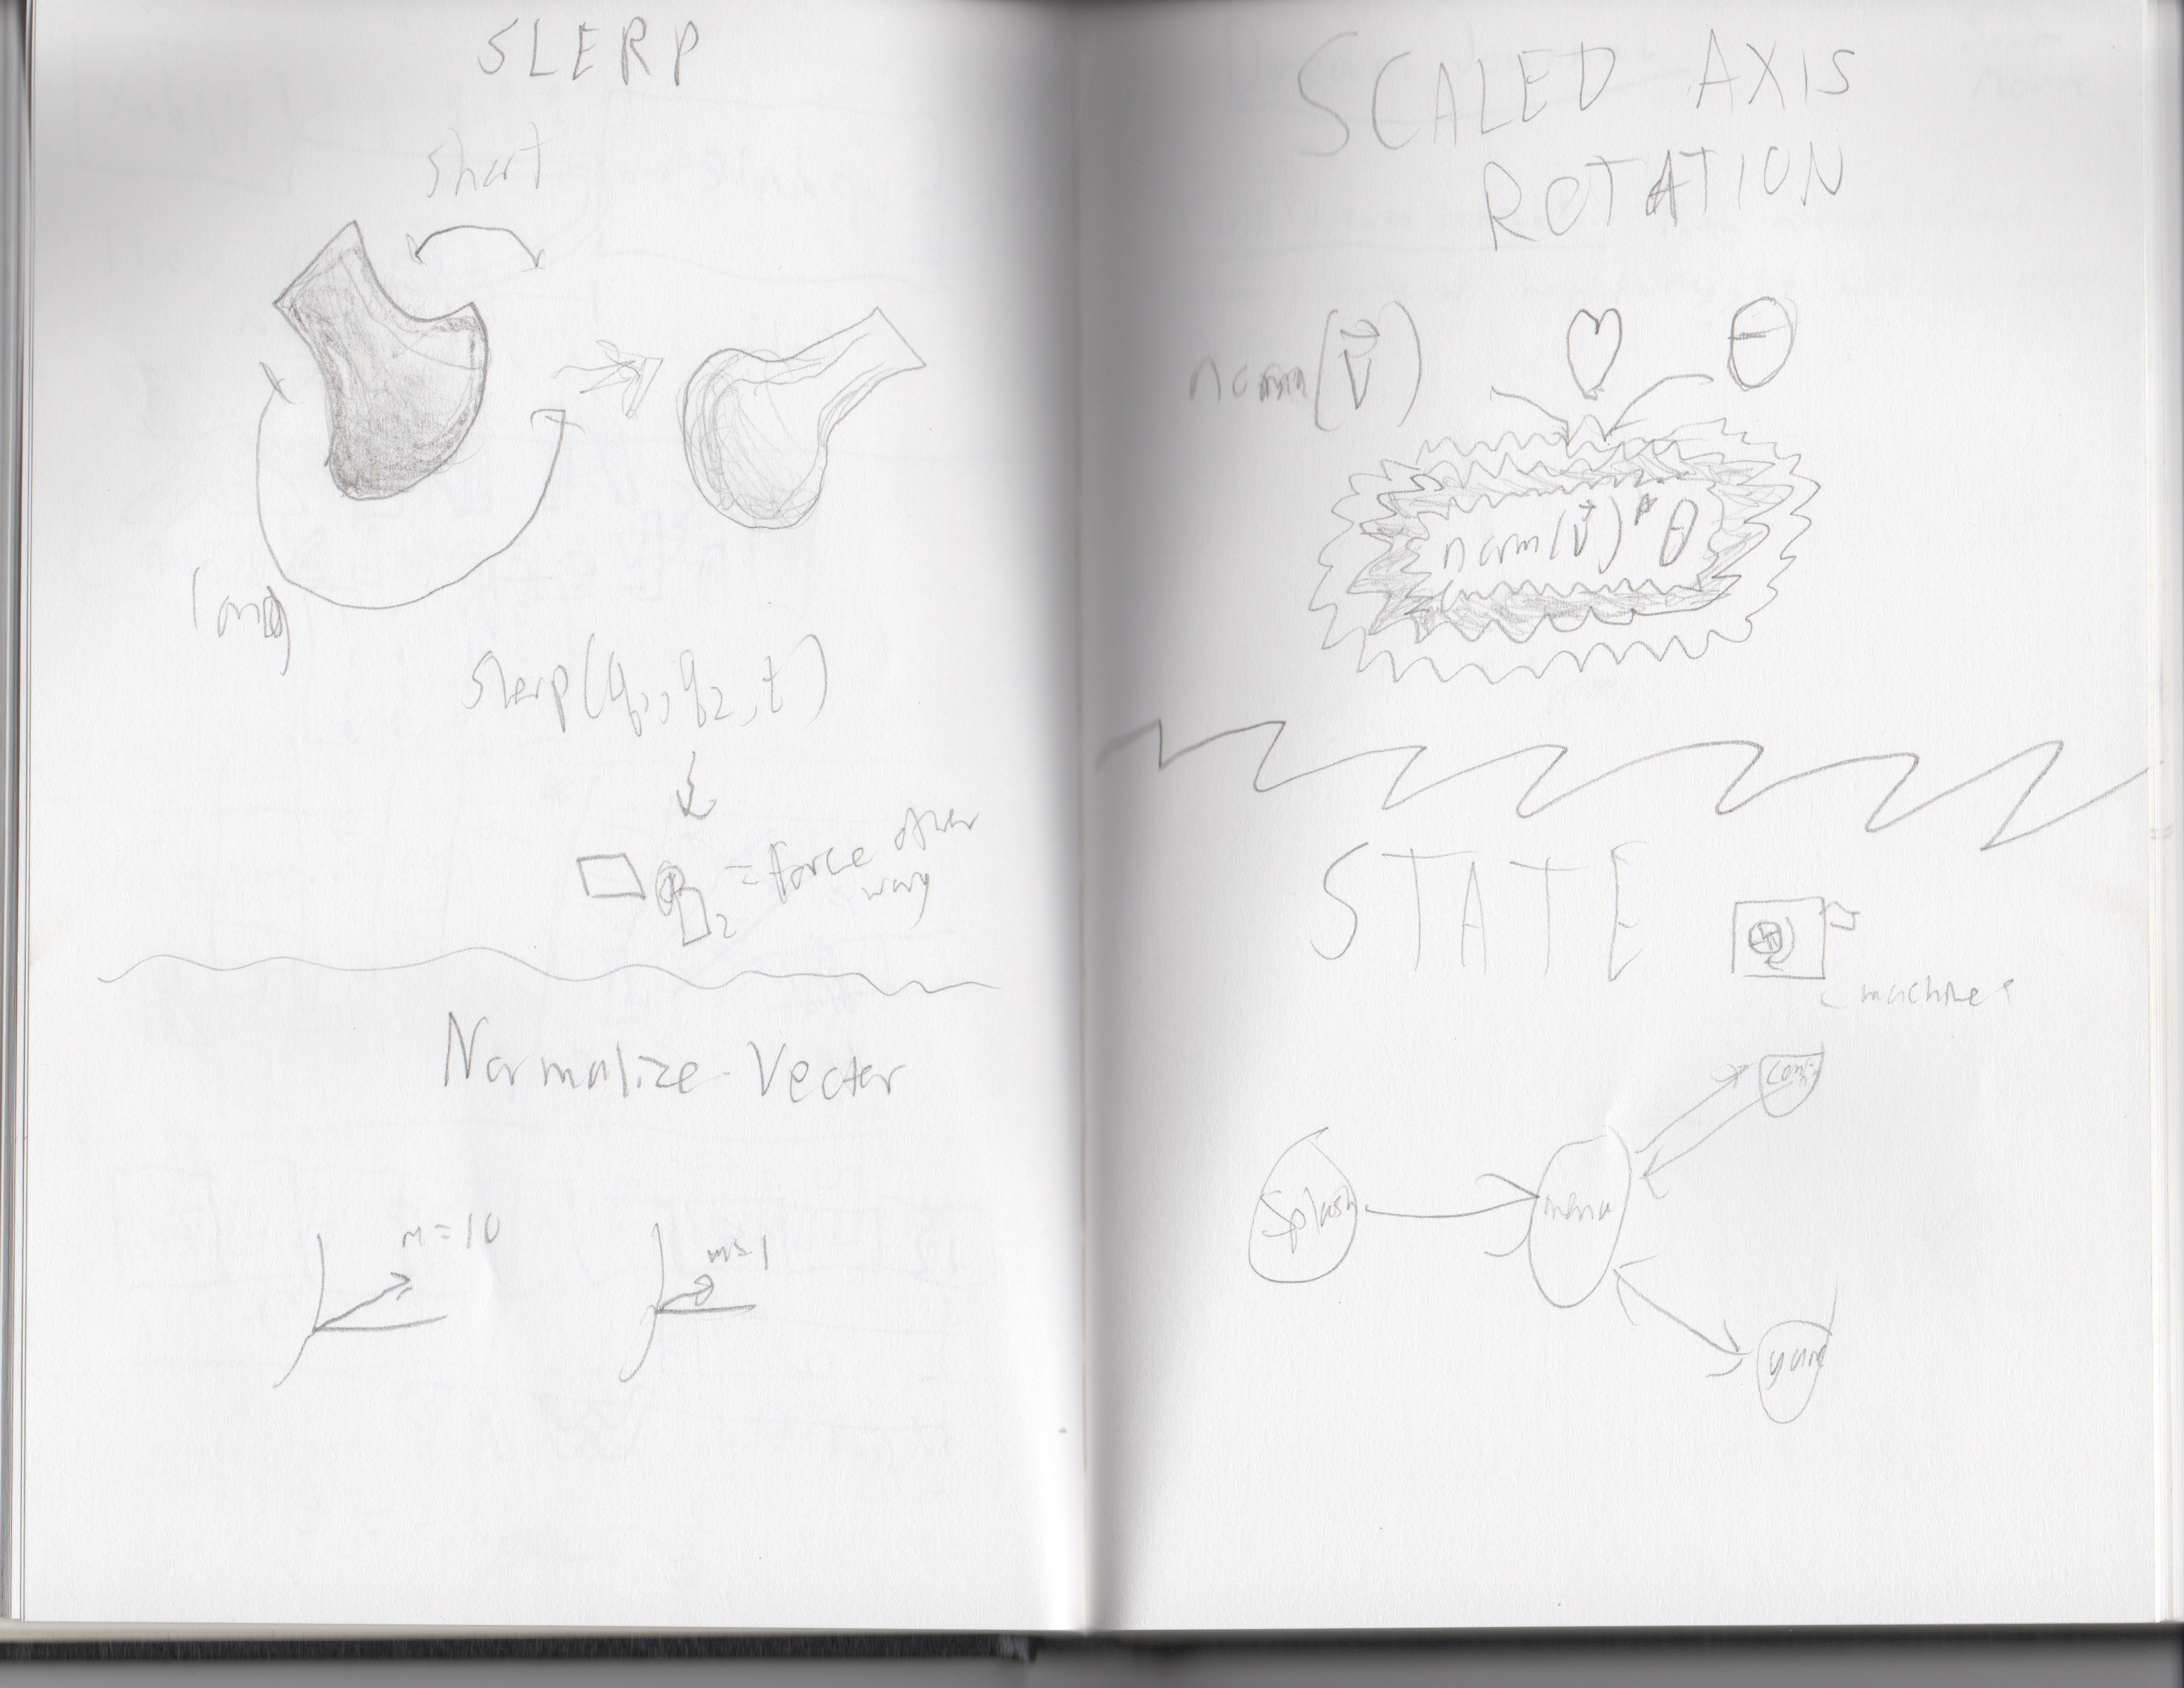 SLERP
short
long
slerp(q₁, q₂, t)
q₂ = force other
way
Normalize Vector
m=10
m=1
SCALED AXIS
ROTATION
norm(v⃗) θ
norm(v⃗)*θ
STATE
machines
conf
Splash
menu
game